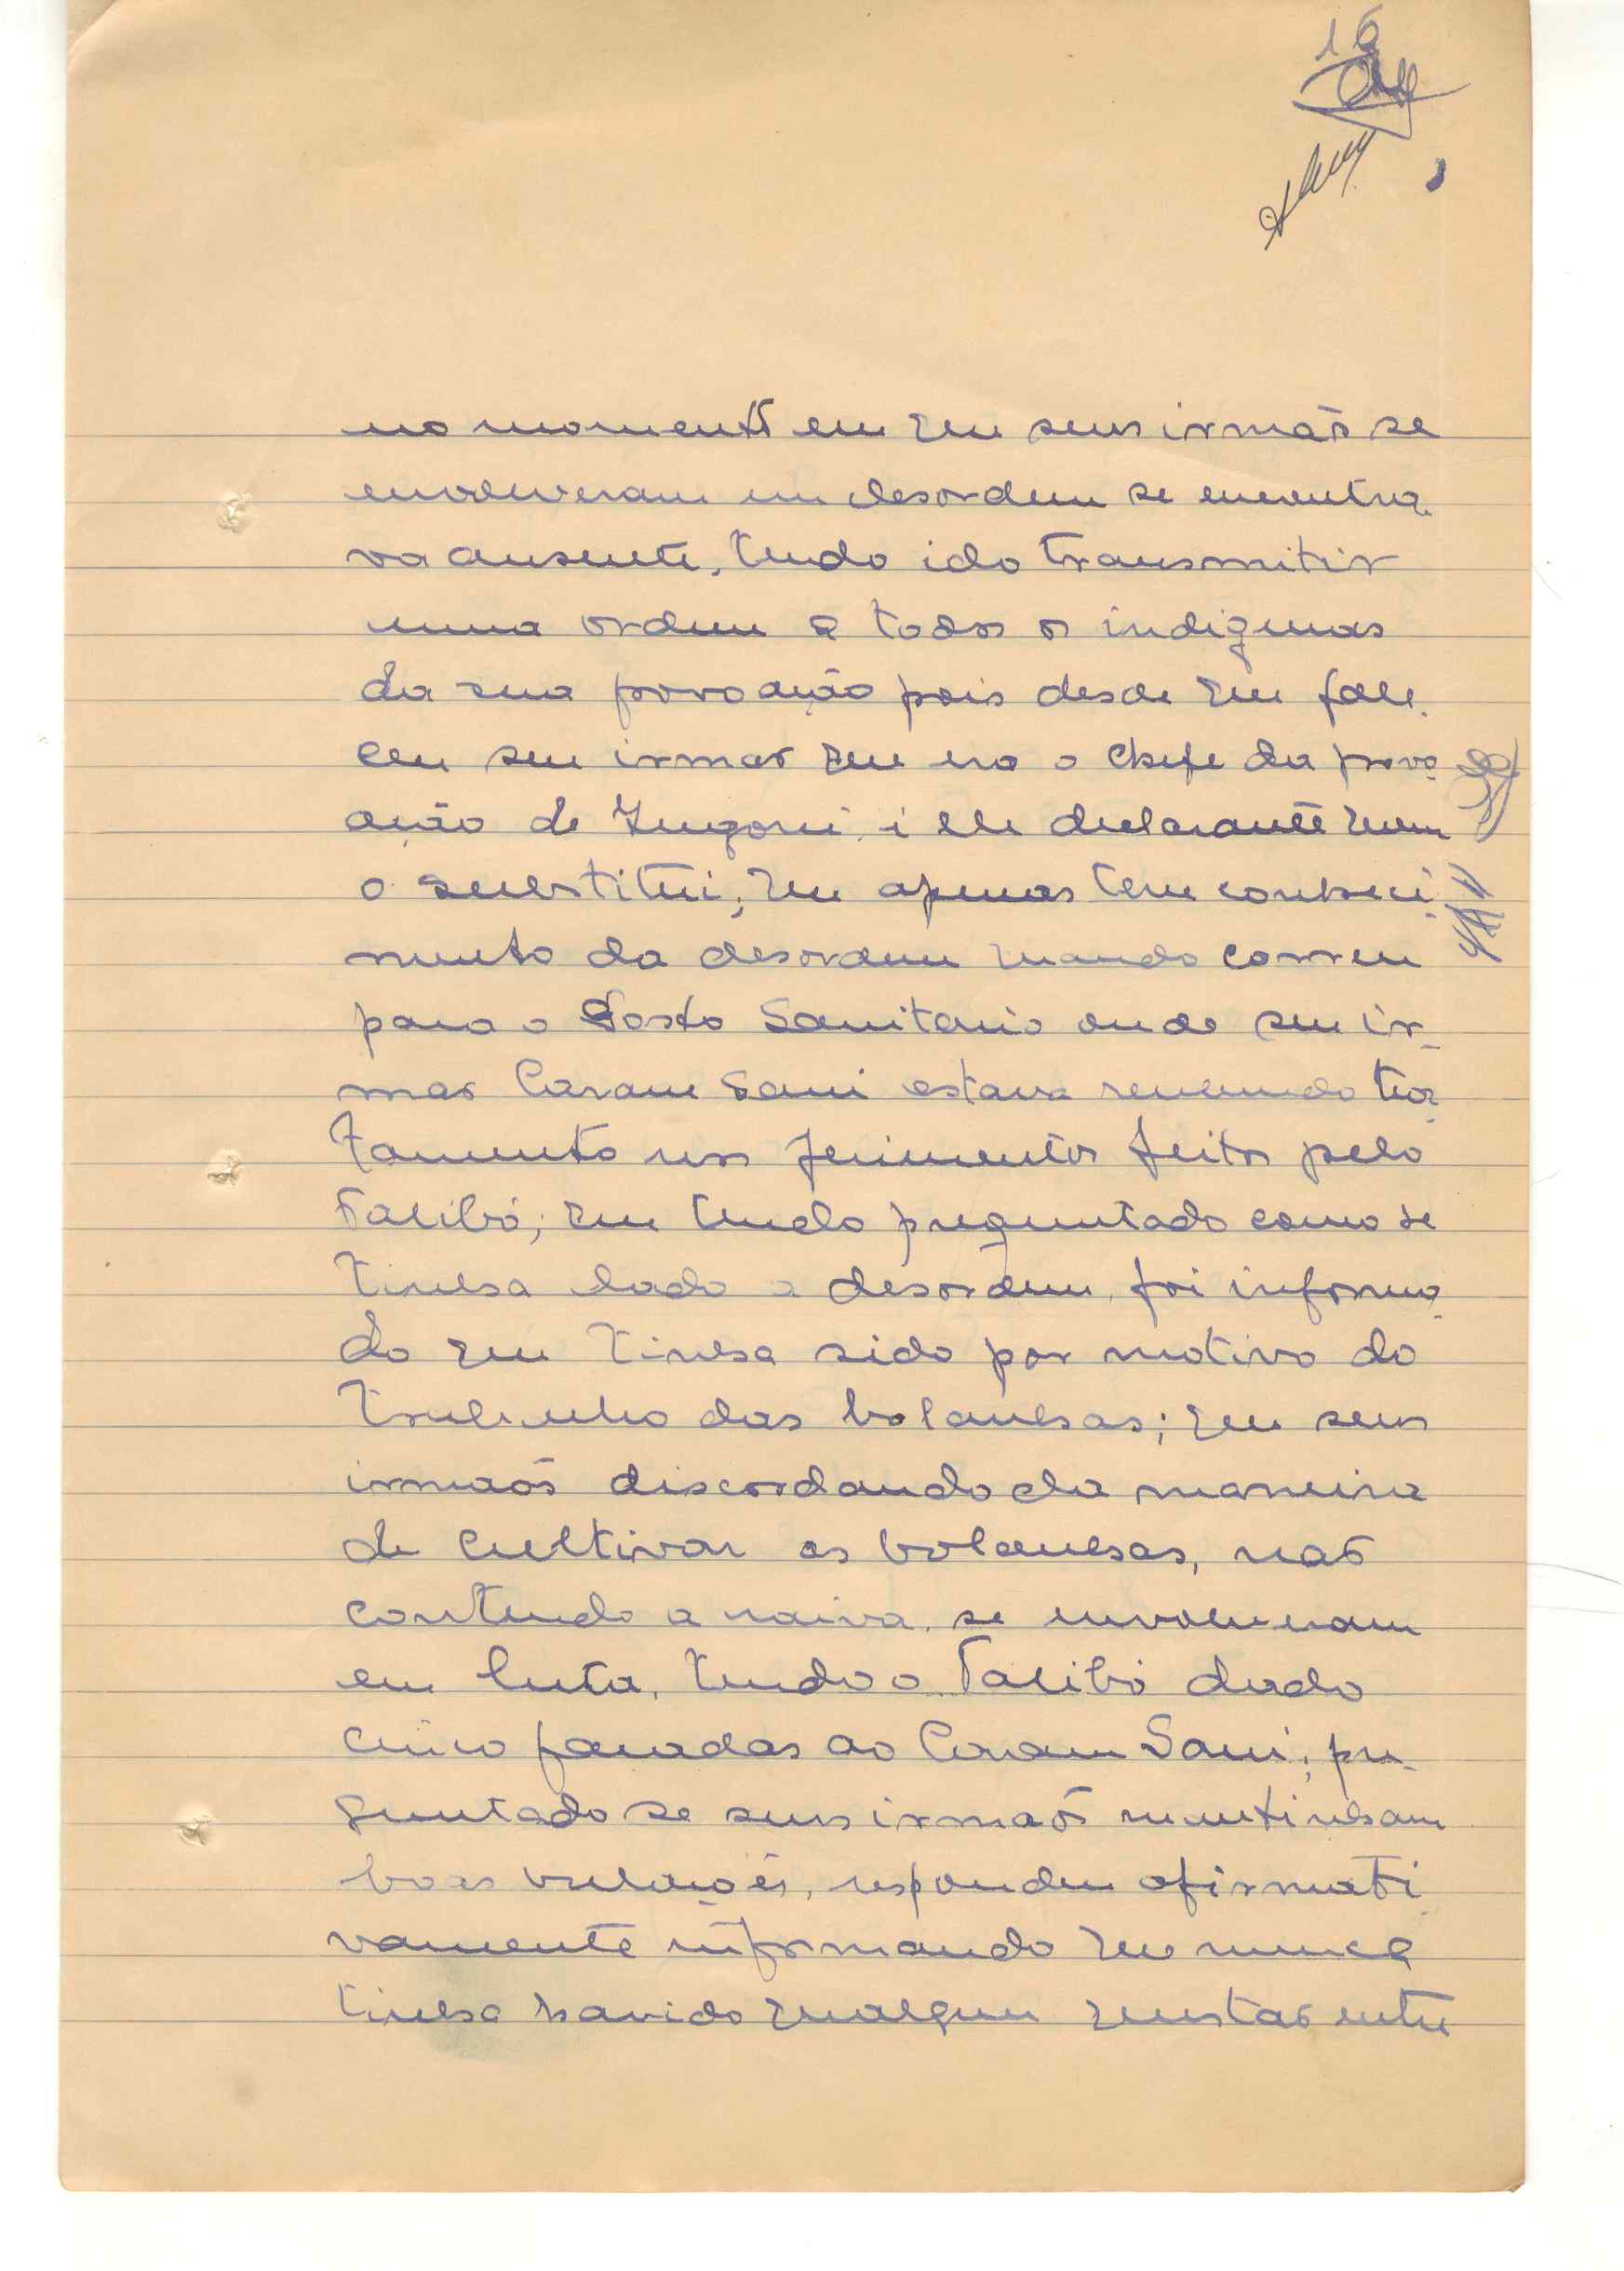 16
no momento em que seus irmãos se
envolveram em desordem se encontra-
va ausente, tendo ido transmitir
uma ordem a todos os indigenas
da sua povoação pois desde que fale-
ceu seu irmão que era o chefe da povo-
ação de é ele declarante quem
o substitui; que apenas teve conheci-
mento da desordem quando correu
para o Posto Sanitario onde seu ir-
mão Caram Sani estava recebendo tra-
tamento nos ferimentos feitos pelo
Talibó; que tendo preguntado como se
tinha dado a desordem, foi informa-
do que tinha sido por motivo do
trabalho das bolanhas; que seus
irmãos discordando da maneira
de cultivar as bolanhas, não
contendo a raiva, se envolveram
em luta, tendo o Talibó dado
cinco facadas ao Caram Sani; pre-
guntado se seus irmãos mantinham
boas relações, respondeu afirmati-
vamente informando que nunca
tinha havido qualquer questão entre